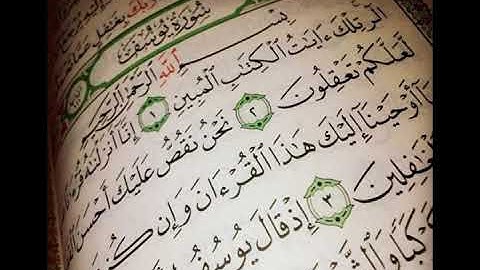 رَبُّكَ بِغَٰفِلٍ عَمَّا
سُورَةُ يُوسُفَ
بِسْمِ ٱللَّهِ ٱلرَّحْمَٰنِ ٱلرَّحِيمِ
الٓر تِلْكَ ءَايَٰتُ ٱلْكِتَٰبِ ٱلْمُبِينِ ١ إِنَّآ أَنزَلْنَٰهُ
لَّعَلَّكُمْ تَعْقِلُونَ ٢ نَحْنُ نَقُصُّ عَلَيْكَ أَحْسَنَ
أَوْحَيْنَآ إِلَيْكَ هَٰذَا ٱلْقُرْءَانَ وَإِن
ٱلْغَٰفِلِينَ ٣ إِذْ قَالَ يُوسُفُ